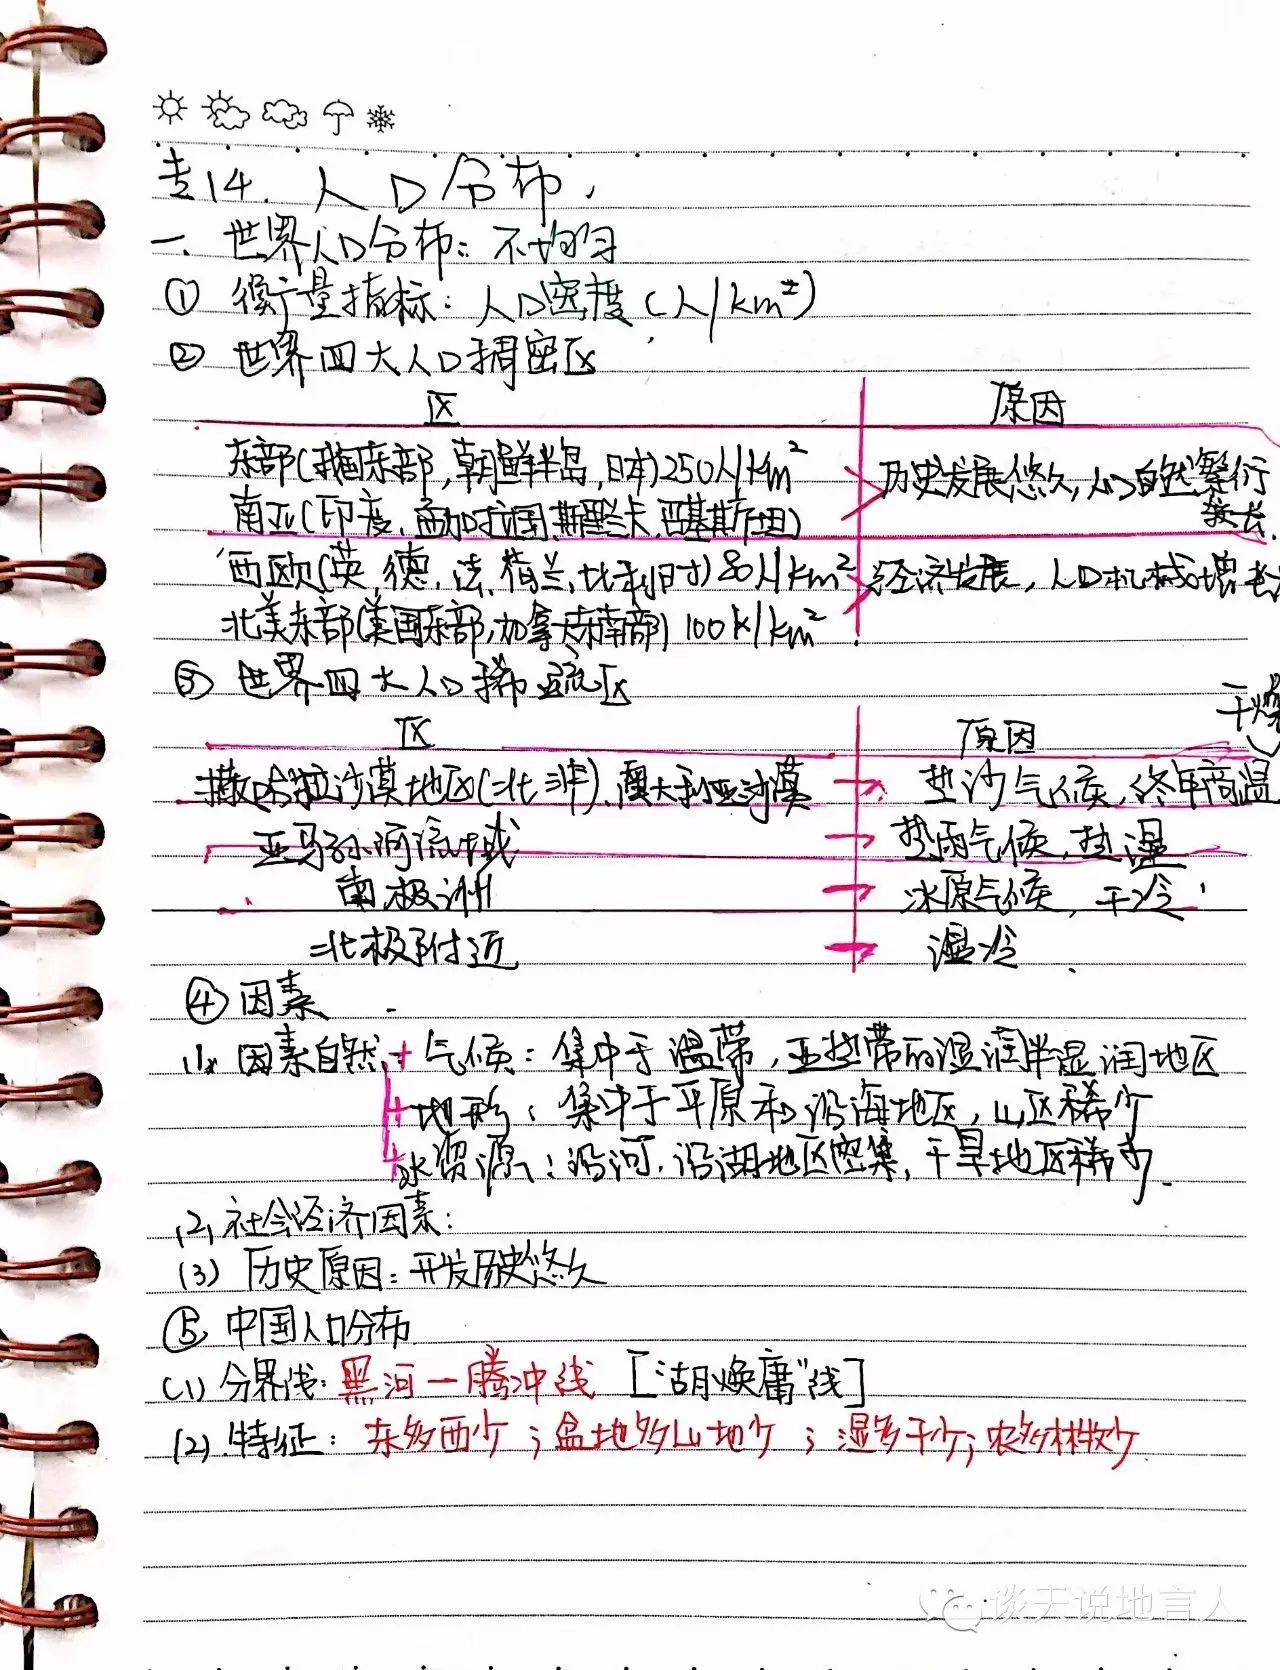 专14. 人口分布.
一. 世界人口分布: 不均匀
① 衡量指标: 人口密度(人/km²)
② 世界四大人口稠密区
区 原因
东部(我国东部,朝鲜半岛,日本)250人/km² 历史发展悠久,人口自然繁衍
南亚(印度.孟加拉国.斯里兰卡.巴基斯坦)
西欧(英.德.法.荷兰.比利时)80人/km² 经济发展,人口机械增长
北美东部(美国东部,加拿大东南部)100人/km².
③ 世界四大人口稀疏区
干燥
区 原因
撒哈拉沙漠地区(北非).澳大利亚沙漠 热沙气候,终年高温
亚马孙河流域 热雨气候,热湿
南极洲 冰原气候,干冷.
北极附近 湿冷.
④ 因素
(1) 因素自然 气候: 集中于温带,亚热带的湿润半湿润地区
地形: 集中于平原和沿海地区,山区稀少
水资源: 沿河.沿湖地区密集,干旱地区稀少.
(2) 社会经济因素:
(3) 历史原因: 开发历史悠久
⑤ 中国人口分布
(1) 分界线: 黑河—腾冲线 ["胡焕庸"线]
(2) 特征: 东多西少;盆地多山地少;湿多干少;农多林牧少
谈天说地言人